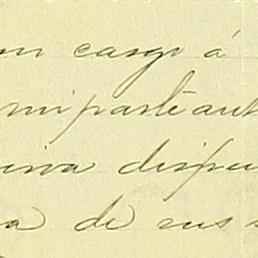 on cargo á
mi parte ant
irva dispen
a de sus s